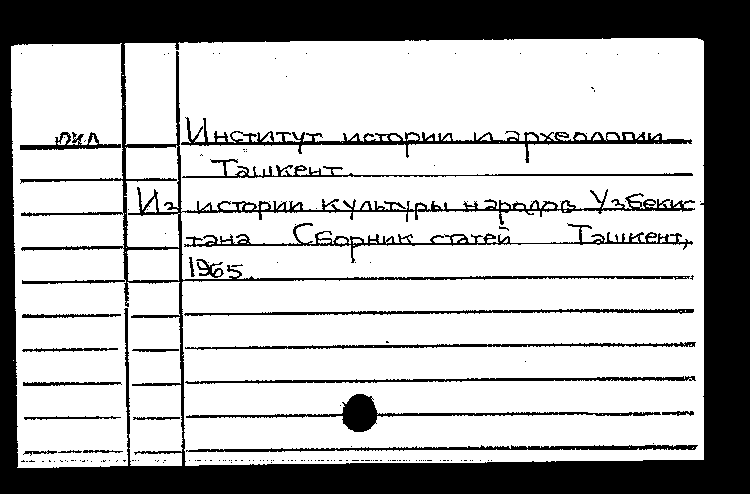 Институт истории и археологии
Ташкент.
Из истории культуры народов Узбекис-
тана. Сборник статей. Ташкент,
1965.